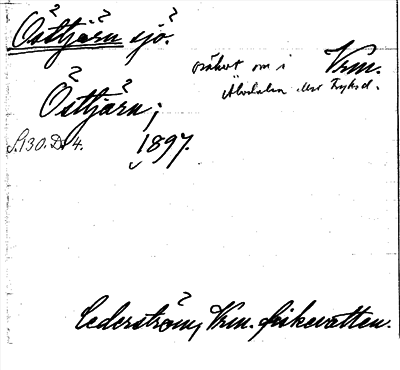 Östtjärn sjö.
osäkert om i Vrm.
Älvdalen eller Fryksd.
Östtjärn;
S.130.D. 4. 1897.
Cederström, Vrm. fiskevatten.